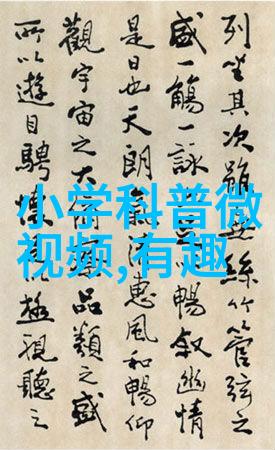 小学科普微
视频,有趣
列坐其次雖無絲竹管弦之
盛一觴一詠以暢敘幽情
是日也天朗氣清惠風和暢仰
觀宇宙之大俯品類之盛
所以遊目騁懷以極視聽之